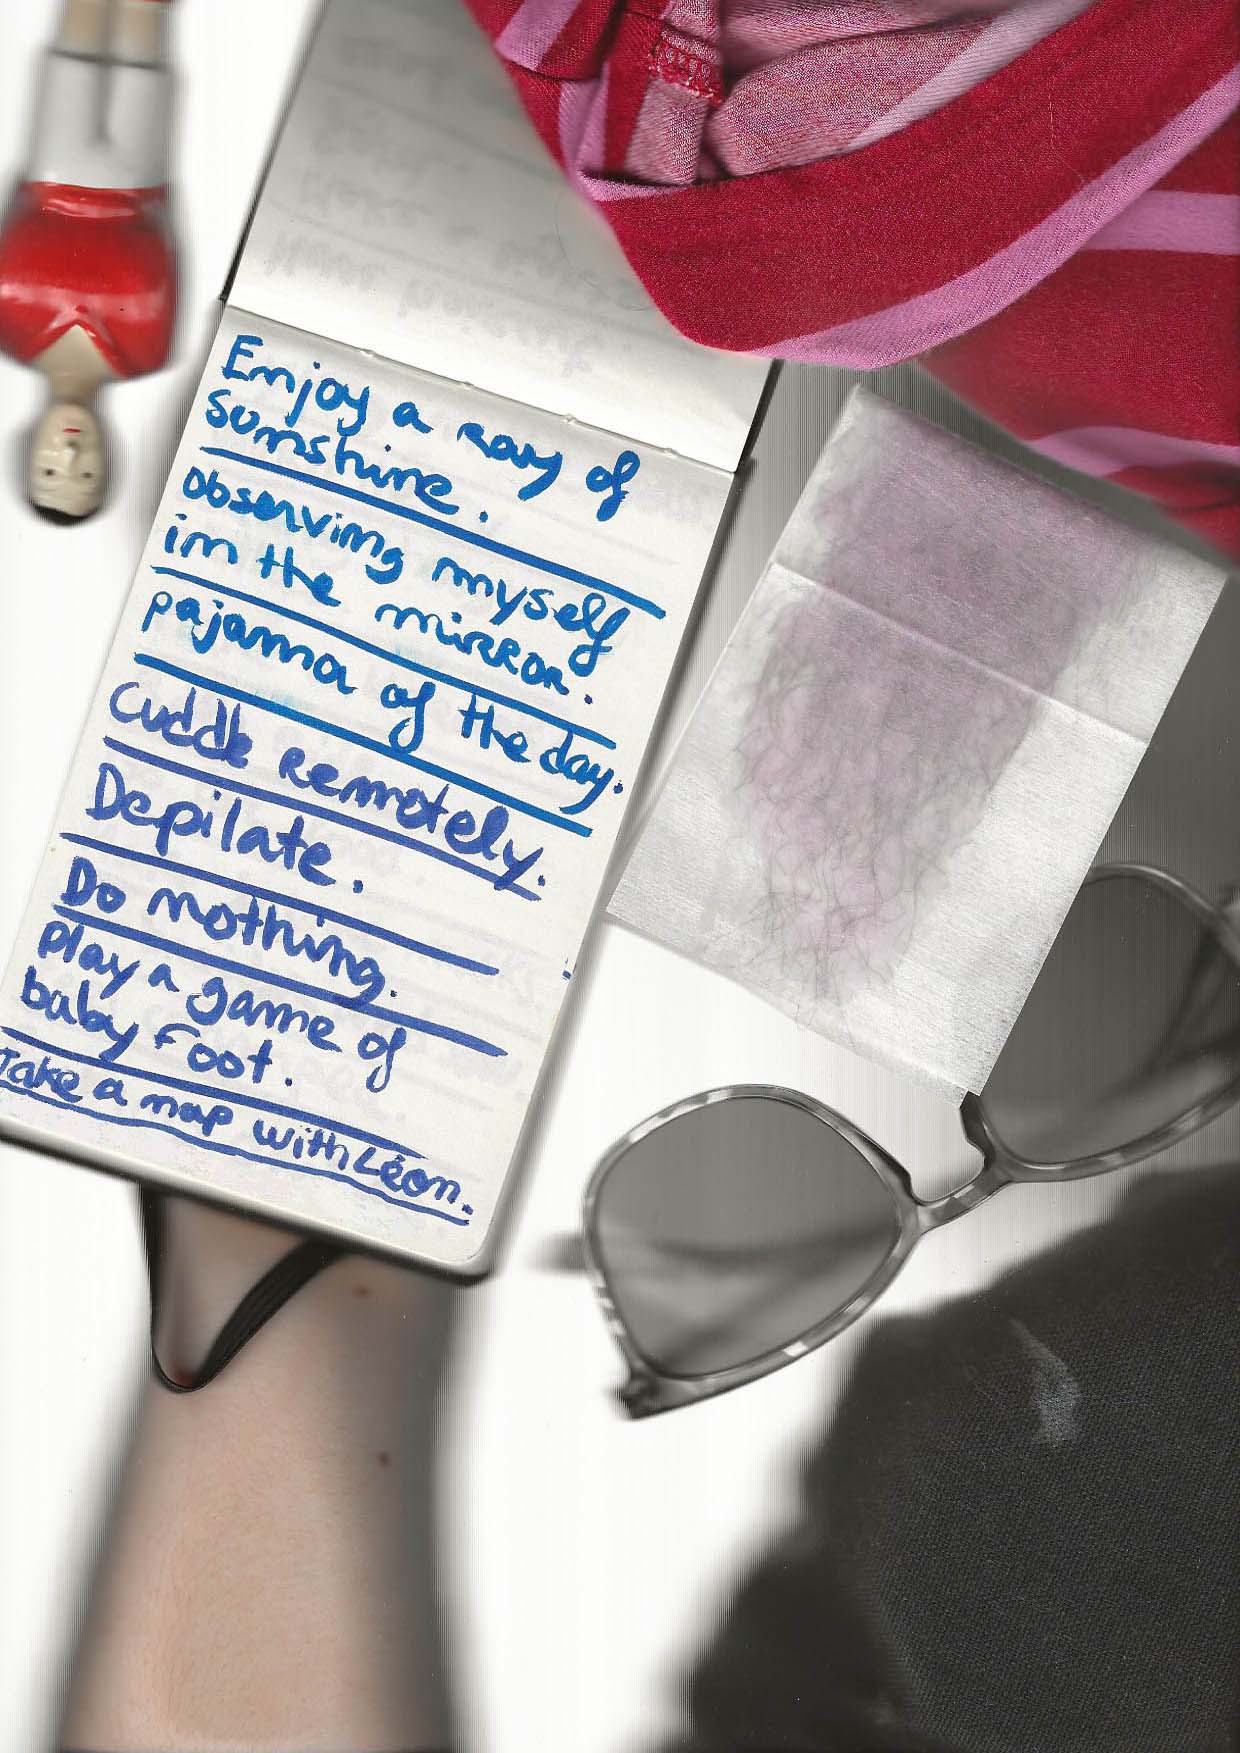 Enjoy a ray of
sunshine.
observing myself
in the mirror.
pajama of the day.
Cuddle remotely.
Depilate.
Do nothing.
play a game of
baby foot.
Take a nap with Léon.